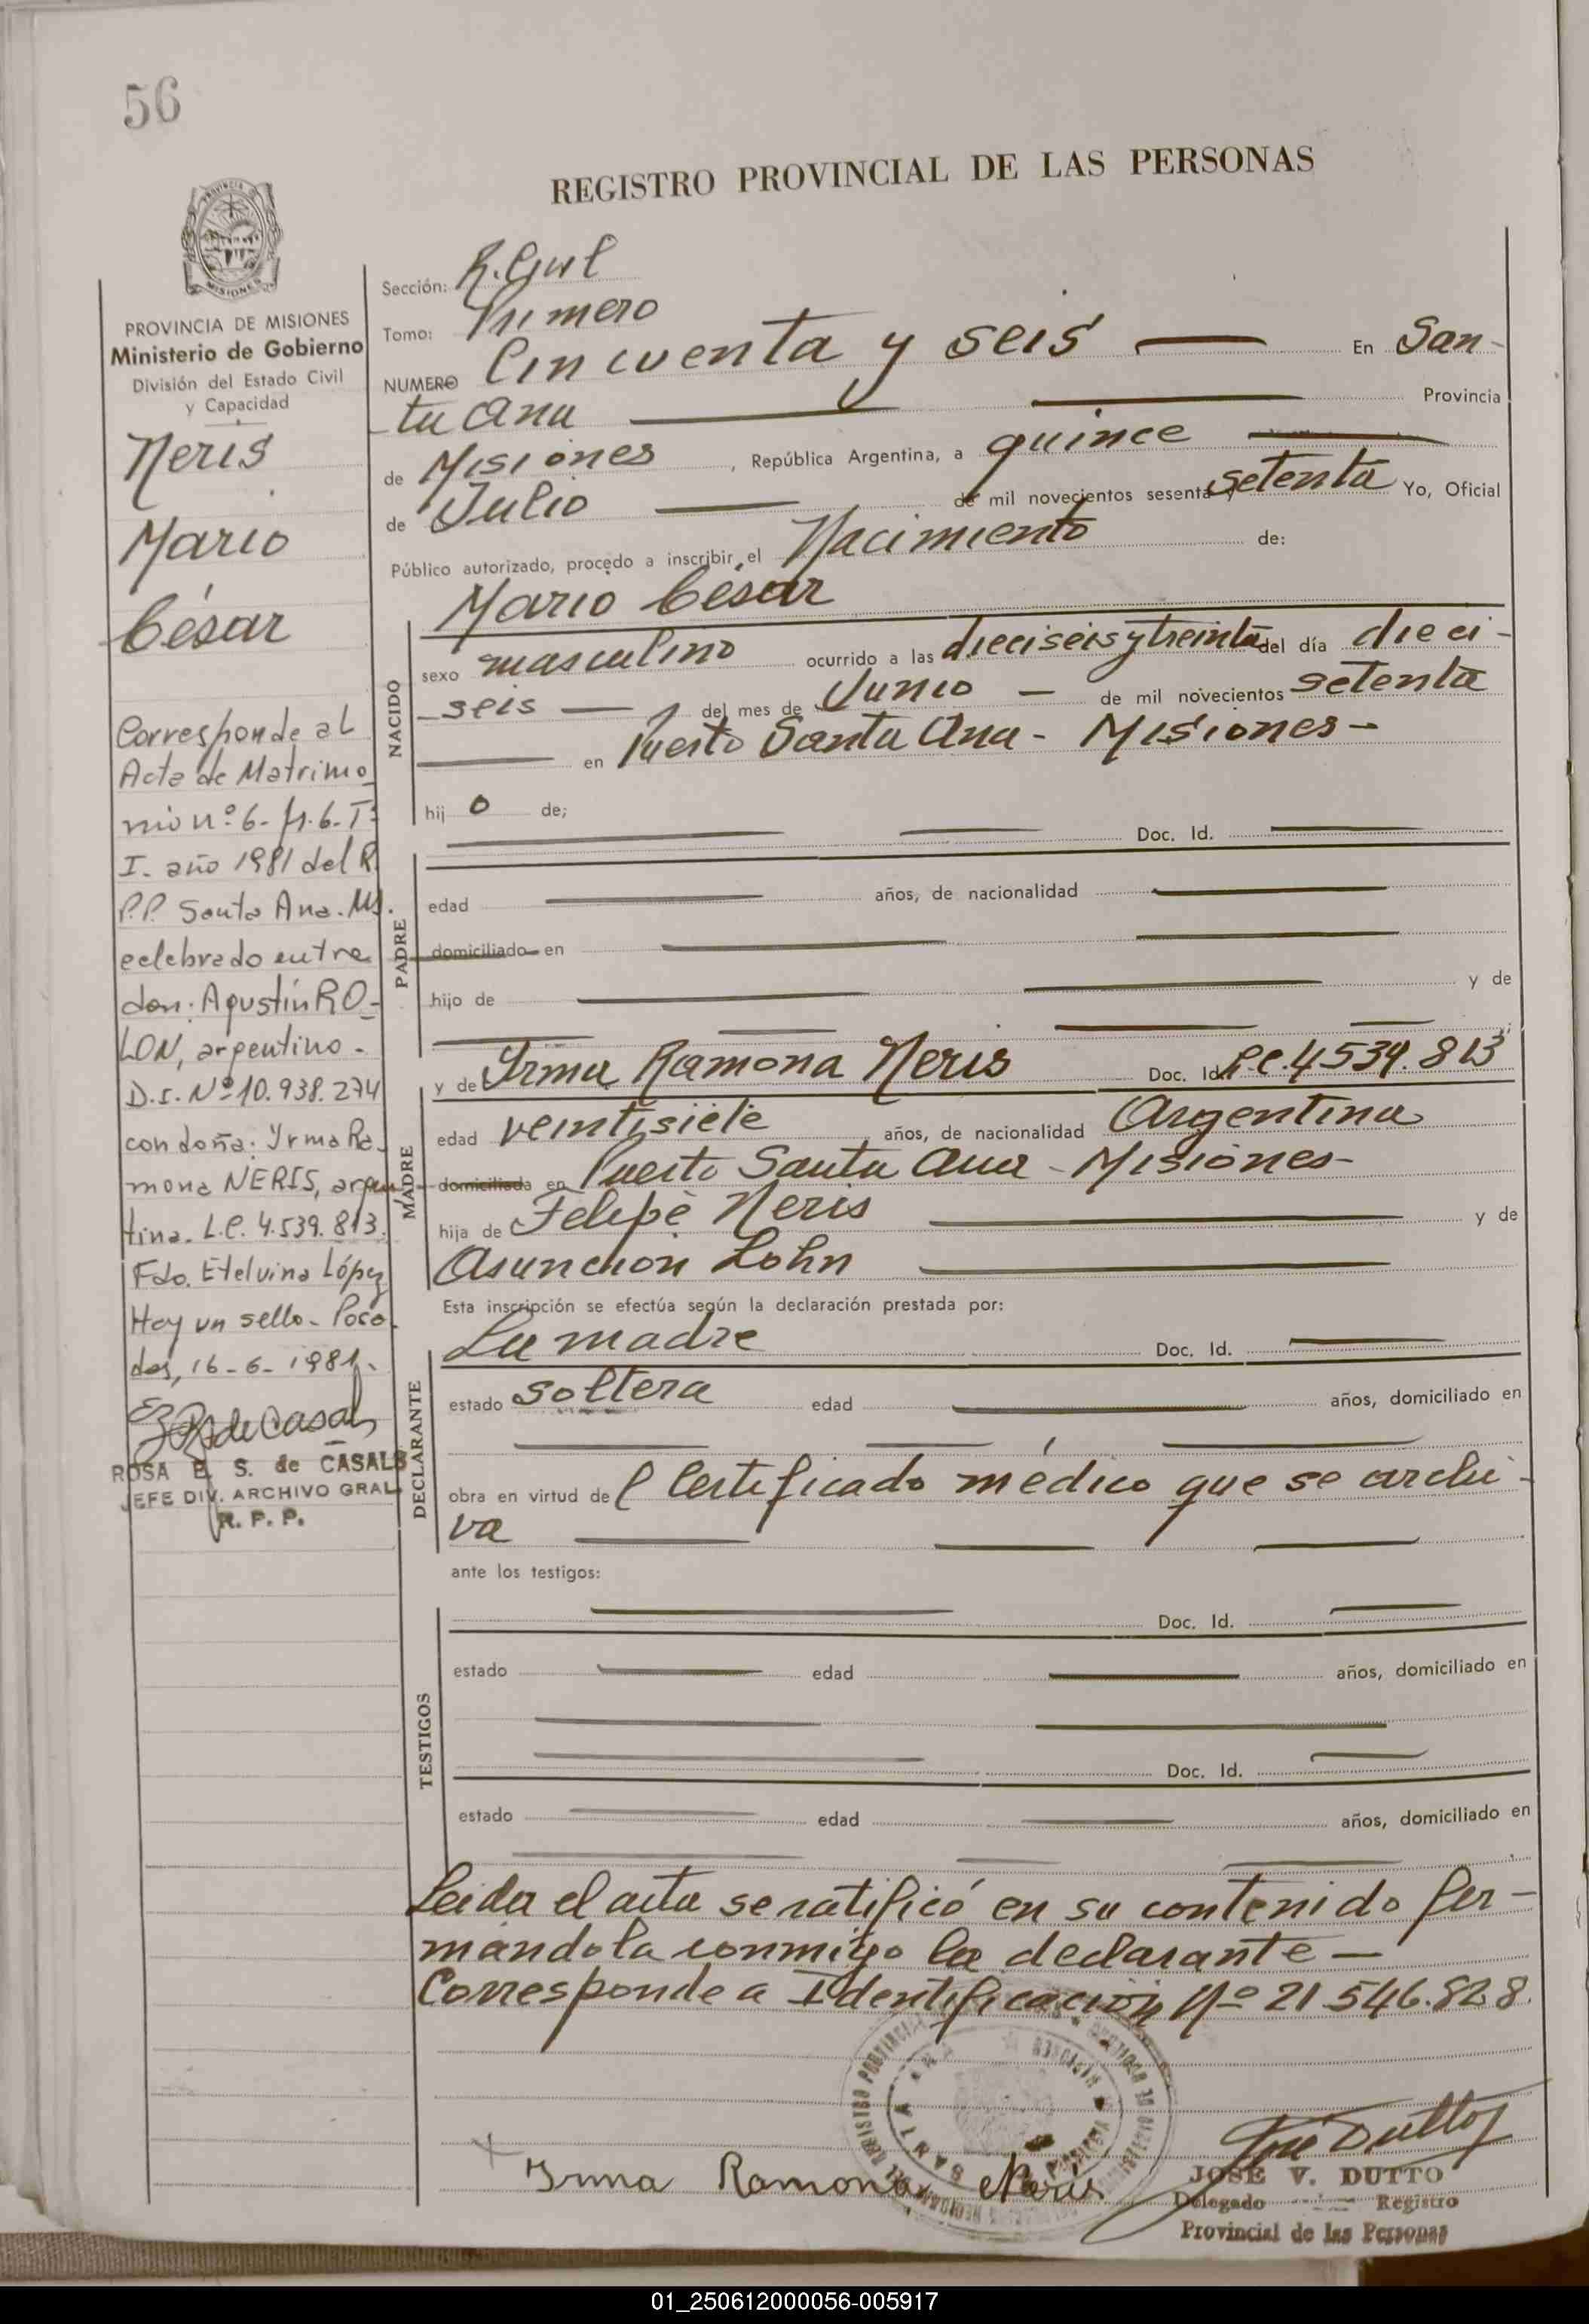 56
REGISTRO PROVINCIAL DE LAS PERSONAS
MISIONES
PROVINCIA DE MISIONES
Ministerio de Gobierno
División del Estado Civil
y Capacidad
Neris
Mario
César
Corresponde al
Acta de Matrimo
nio nº 6- fº. 6- Tº
I- año 1981 del R.
P.P. Santa Ana. Ms.
celebrado entre
don: Agustín RO-
LON, argentino-
D.I. Nº 10.938.274
con doña: Yrma Ra-
mona NERIS, argen-
tina. L.C. 4.539.813.
Fdo. Etelvina López
Hay un sello- Posa-
das, 16-6-1981.
ROSA E. S. de CASALS
JEFE DIV. ARCHIVO GRAL
R. P. P.
Sección: R. Civil
Tomo: Primero
NUMERO Cincuenta y seis En San-
ta Ana Provincia
de Misiones, República Argentina, a quince
de Julio de mil novecientos sesenta y setenta Yo, Oficial
Público autorizado, procedo a inscribir el Nacimiento de:
Mario César
NACIDO
sexo masculino ocurrido a las dieciseis y treinta del día dieci-
seis del mes de Junio de mil novecientos setenta
en Puerto Santa Ana - Misiones-
hij o de;
Doc. Id.
PADRE
edad años, de nacionalidad
domiciliado en
hijo de y de
y de Yrma Ramona Neris Doc. Id. L.C. 4539.813
MADRE
edad veintisiete años, de nacionalidad Argentina
domiciliada en Puerto Santa Ana - Misiones-
hija de Felipe Neris y de
Asunción Lohn
Esta inscripción se efectúa según la declaración prestada por:
La madre Doc. Id.
DECLARANTE
estado soltera edad años, domiciliado en
obra en virtud de l Certificado médico que se archi-
va
ante los testigos:
Doc. Id.
TESTIGOS
estado edad años, domiciliado en
Doc. Id.
estado edad años, domiciliado en
Leida el acta se ratificó en su contenido fir-
mandola conmigo la declarante-
Corresponde a Identificación Nº 21.546.828.
SANTA ANA
Yrma Ramona Neris
José Dutto
JOSÉ V. DUTTO
Delegado Registro
Provincial de las Personas
01_250612000056-005917